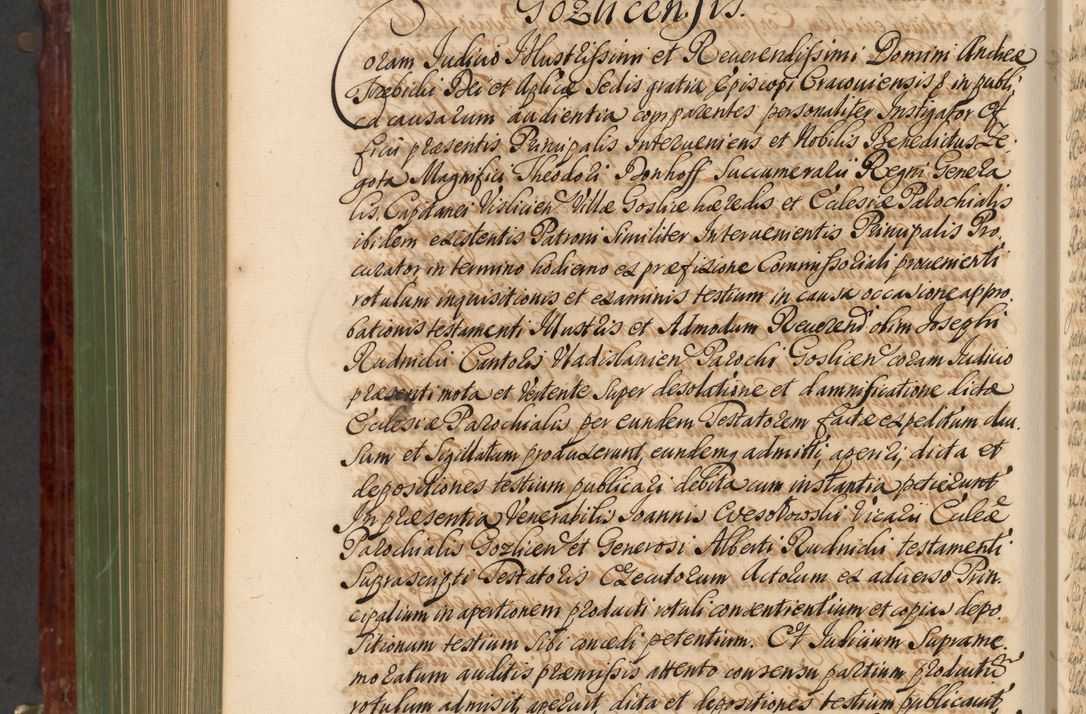 Gozlicensis.
Coram Judicio Illustrissimi et Reverendissimi Domini Andreæ
Trzebicki Dei et Aplicæ Sedis gratia Episcopi Cracoviensis & in publi,
ca causarum audientia comparentes personaliter Instigator Of
ficii præsentis Principalis Interveniens et Nobilis Benedictus Ze.
gota Magnifici Theodori Donhoff Succamerarii Regni Genera
lis, Capitanei Vislicien Villæ Goslice hæredis et Ecclesiæ Parochialis
ibidem existentis Patroni Similiter Intervenientis Principalis Pro,
curator in termino hodierno ex præfixione Commissoriali provenienti
rotulum inquisitionis et examinis testium in causa occasione appro,
bationis testamenti Illustris et Admodum Reverend olim Josephi
Rudnicki Cantoris Vladislavien Parochi Goslicen coram Judicio
præsenti mota et Vertente super desolatione et damnificatione dictæ
Ecclesiæ Parochialis per eundem Testatorem factæ expeditum clau.
sum et sigillatum produxerunt, eundemq admitti, aperiri, dicta et
depositiones testium publicari debita cum instantia petierunt
In præsentia Venerabilis Joannis Vicarii Eccleæ
Parochialis Gozlicen et Generosi Alberti Rudnicki testamenti
Suprascripti Testatoris Executorum Actorum ex adverso Prin.
cipalium in apertionem producti rotuli consentientium et copias depo
sitionum testium sibi concedi petentium. Et Judicium Supramе.
moratum auditis præmissis attento consensu partium productũ
rotulum admisit, aperuit, dicta et depositiones testium publicavit